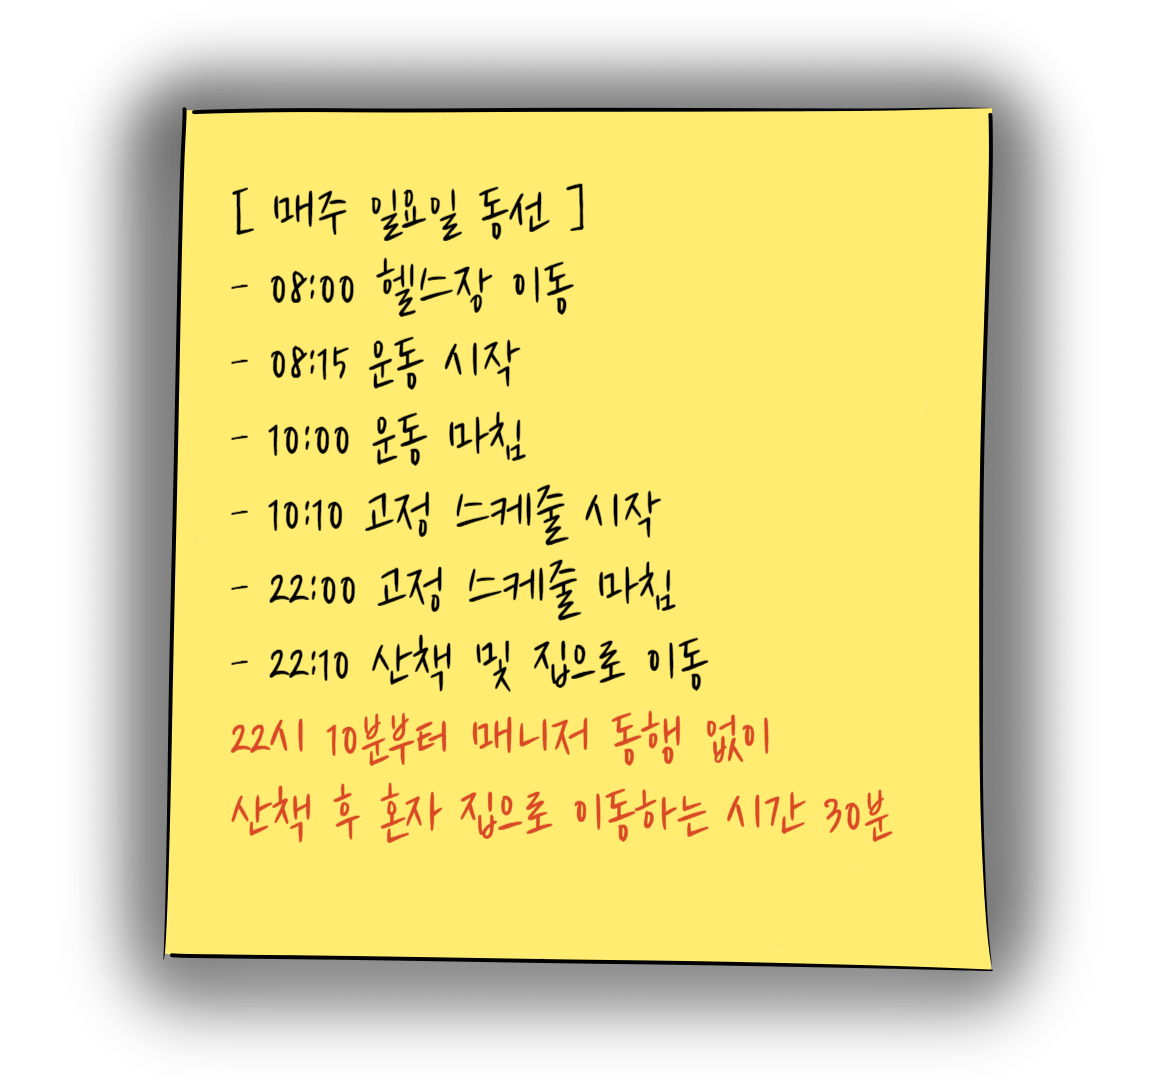 [ 매주 일요일 동선 ]
- 08:00 헬스장 이동
- 08:15 운동 시작
- 10:00 운동 마침
- 10:10 고정 스케줄 시작
- 22:00 고정 스케줄 마침
- 22:10 산책 및 집으로 이동
22시 10분부터 매니저 동행 없이
산책 후 혼자 집으로 이동하는 시간 30분